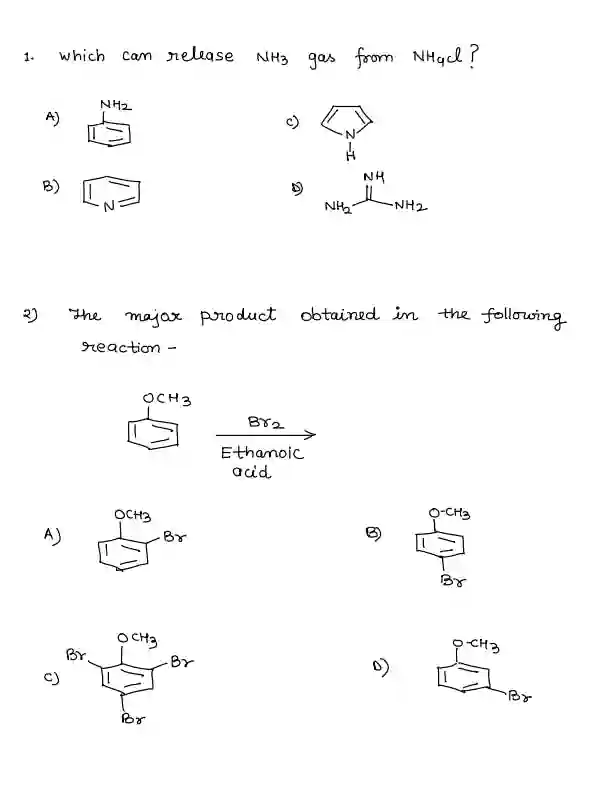 1. which can release NH3 gas from NH4cl?
A) NH2
C) N H
B) N
D) NH NH2 NH2
2) The major product obtained in the following
reaction -
OCH3
Br2
Ethanoic
acid
A) OCH3 Br
B) O-CH3 Br
C) OCH3 Br Br Br
D) O-CH3 Br